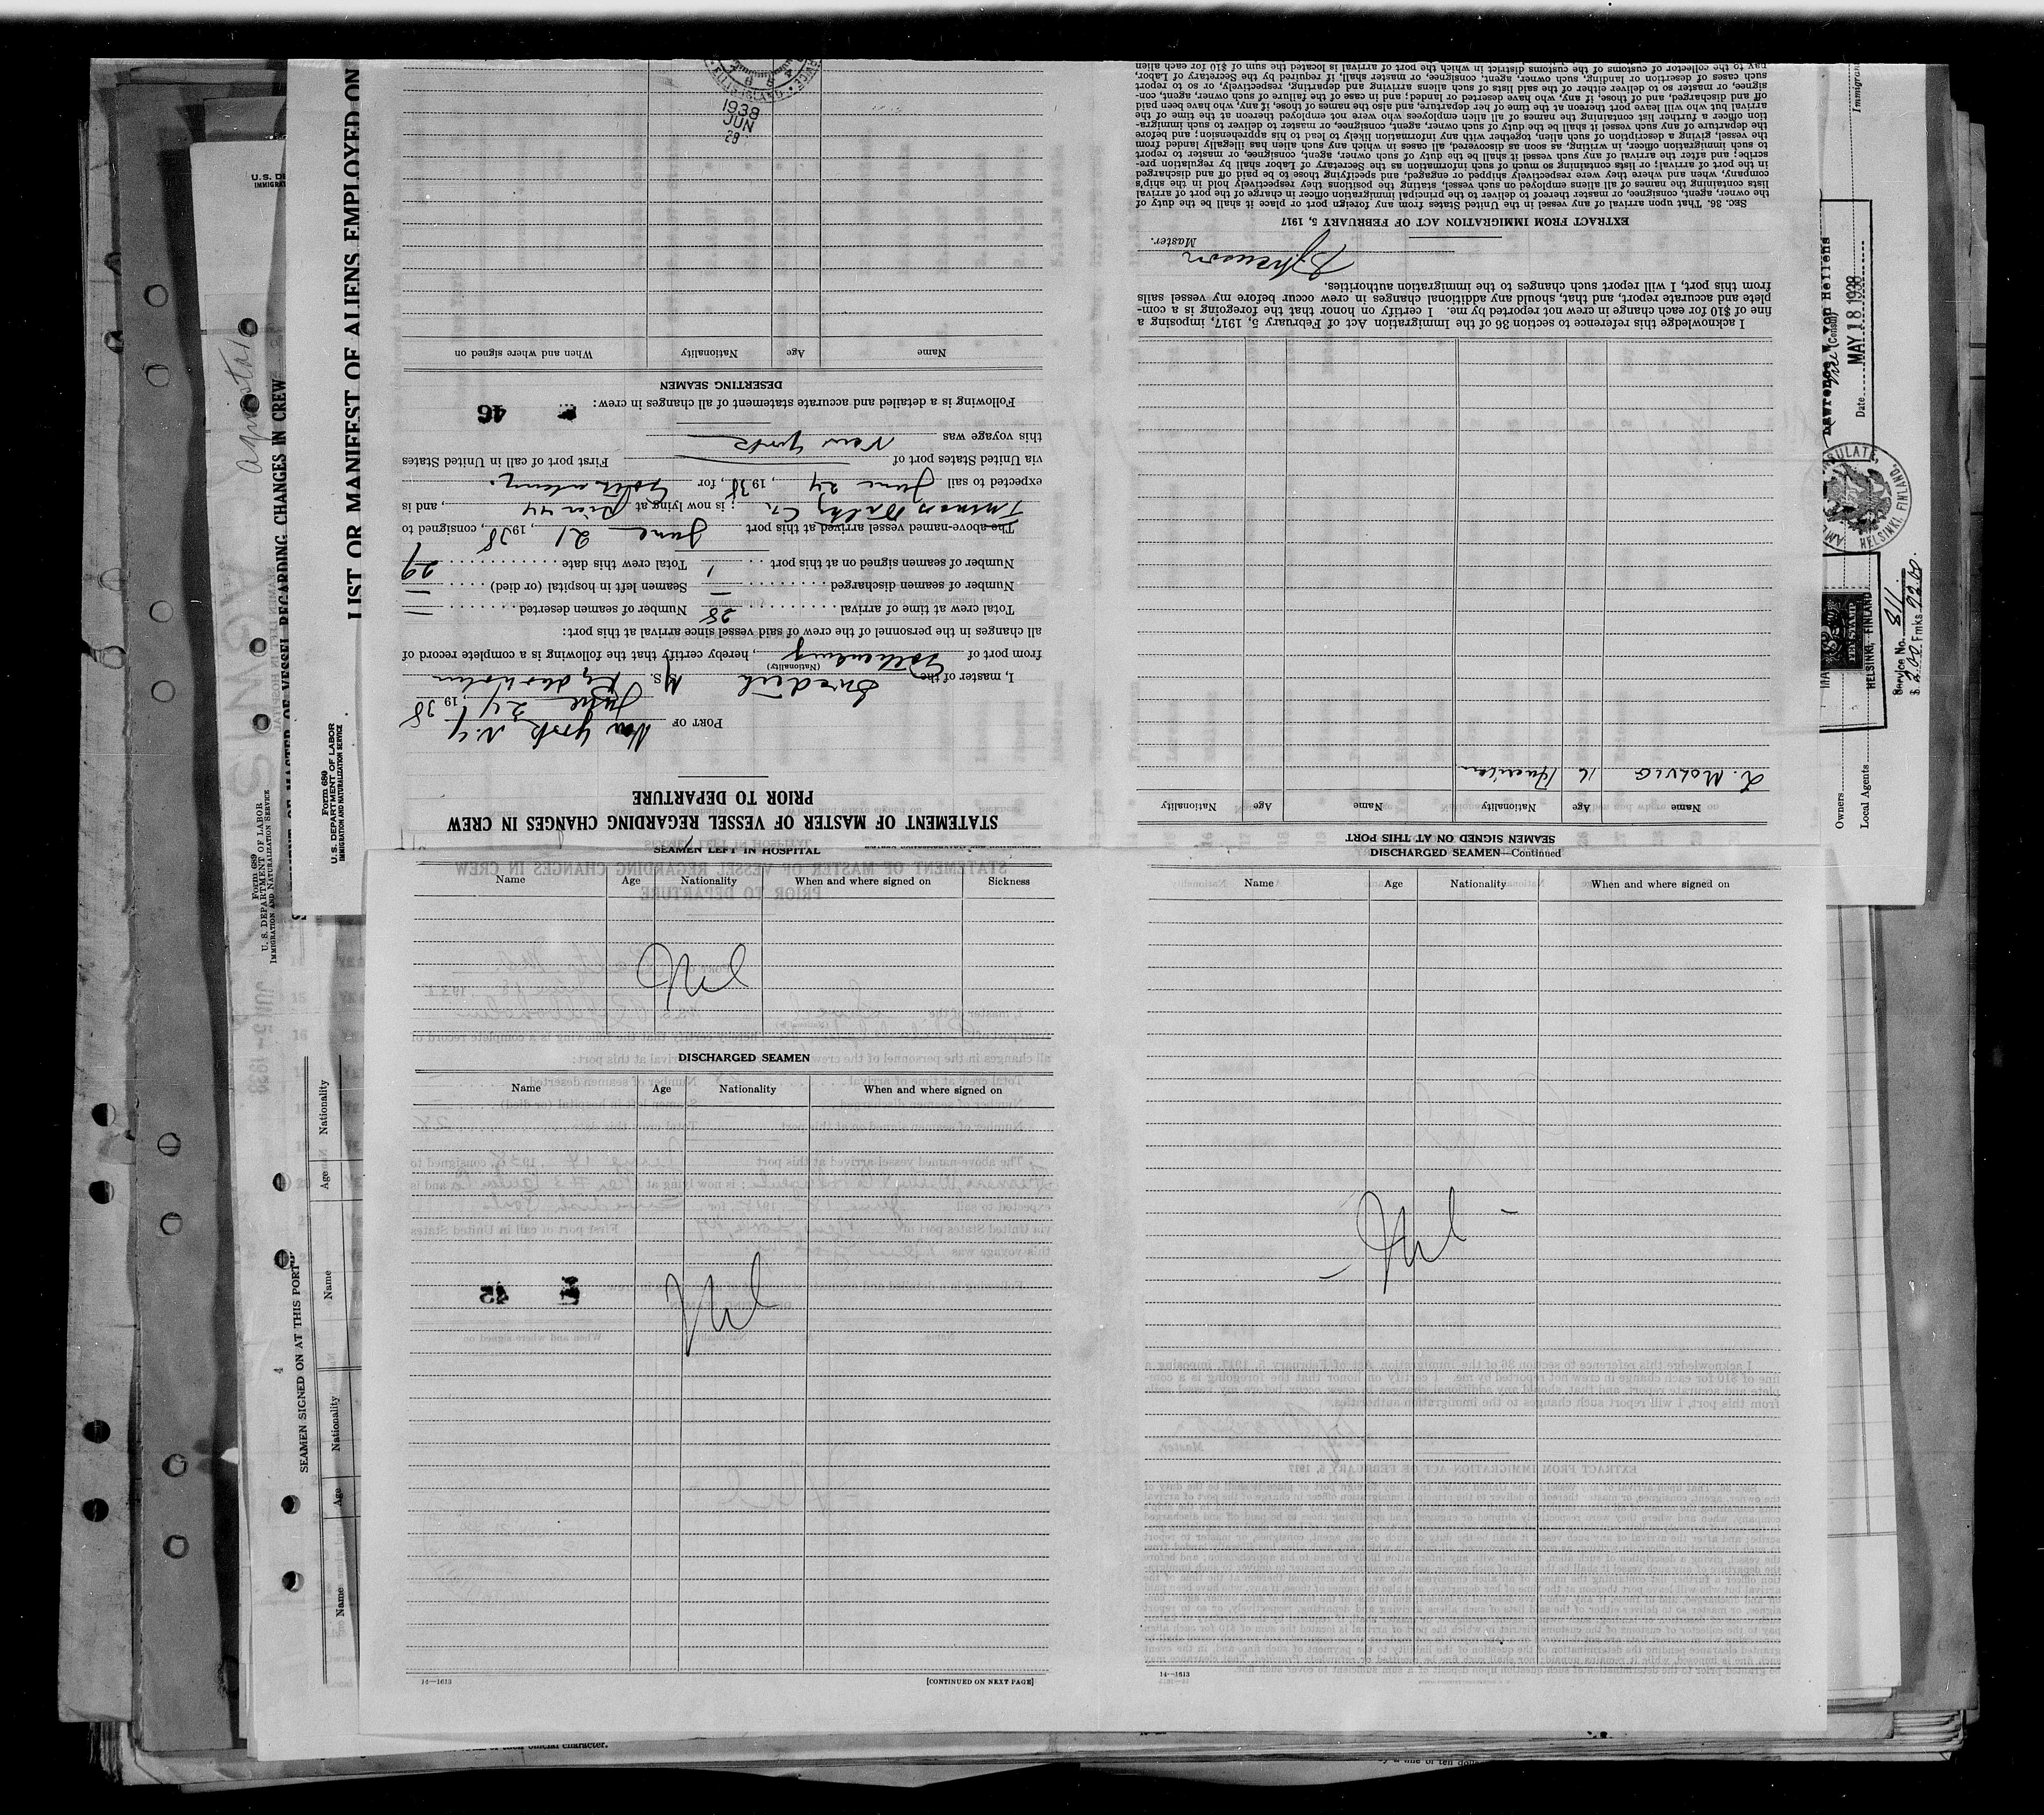 STATEMENT OF MASTER OF VESSEL REGARDING CHANGES IN CREW
PRIOR TO DEPARTURE
PORT OF New York N.Y.
June 24, 1938
I, master of the Swedish M/S.
(Nationality)
from port of Gothenburg, hereby certify that the following is a complete record of
all changes in the personnel of the crew of said vessel since arrival at this port:
Total crew at time of arrival 28 Number of seamen deserted —
Number of seamen discharged — Seamen left in hospital (or died) —
Number of seamen signed on at this port 1 Total crew this date 29
The above-named vessel arrived at this port June 21, 1938, consigned to
; is now lying at Pier 44, and is
expected to sail June 24, 1938, for Gothenburg.
via United States port of First port of call in United States
this voyage was New York
Following is a detailed and accurate statement of all changes in crew: 46
DESERTING SEAMEN
Name Age Nationality When and where signed on
28
JUN
1938
ELLIS ISLAND
SEAMEN SIGNED ON AT THIS PORT
Name Age Nationality Name Age Nationality
L. MOLVIG 16 American
I acknowledge this reference to section 36 of the Immigration Act of February 5, 1917, imposing a
fine of $10 for each change in crew not reported by me. I certify on honor that the foregoing is a com-
plete and accurate report, and that, should any additional changes in crew occur before my vessel sails
from this port, I will report such changes to the immigration authorities.
Master.
EXTRACT FROM IMMIGRATION ACT OF FEBRUARY 5, 1917
SEC. 36. That upon arrival of any vessel in the United States from any foreign port or place it shall be the duty of
the owner, agent, consignee, or master thereof to deliver to the principal immigration officer in charge of the port of arrival
lists containing the names of all aliens employed on such vessel, stating the positions they respectively hold in the ship's
company, when and where they were respectively shipped or engaged, and specifying those to be paid off and discharged
in the port of arrival; or lists containing so much of such information as the Secretary of Labor shall by regulation pre-
scribe; and after the arrival of any such vessel it shall be the duty of such owner, agent, consignee, or master to report
to such immigration officer, in writing, as soon as discovered, all cases in which any such alien has illegally landed from
the vessel, giving a description of such alien, together with any information likely to lead to his apprehension; and before
the departure of any such vessel it shall be the duty of such owner, agent, consignee, or master to deliver to such immigra-
tion officer a further list containing the names of all alien employees who were not employed thereon at the time of the
arrival but who will leave port thereon at the time of her departure, and also the names of those, if any, who have been paid
off and discharged, and of those, if any, who have deserted or landed; and in case of the failure of such owner, agent, con-
signee, or master so to deliver either of the said lists of such aliens arriving and departing, respectively, or so to report
such cases of desertion or landing, such owner, agent, consignee, or master shall, if required by the Secretary of Labor,
pay to the collector of customs of the customs district in which the port of arrival is located the sum of $10 for each alien
SEAMEN LEFT IN HOSPITAL
Name Age Nationality When and where signed on Sickness
Nil
DISCHARGED SEAMEN
Name Age Nationality When and where signed on
Nil
14—1613
[CONTINUED ON NEXT PAGE]
DISCHARGED SEAMEN—Continued
Name Age Nationality When and where signed on
Nil
14—1613
LIST OR MANIFEST OF ALIENS EMPLOYED ON
Form 689
U.S. DEPARTMENT OF LABOR
IMMIGRATION AND NATURALIZATION SERVICE
Form 689
U. S. DEPARTMENT OF LABOR
IMMIGRATION AND NATURALIZATION SERVICE
OF VESSEL REGARDING CHANGES IN CREW
SEAMEN SIGNED ON AT THIS PORT
Name Age Nationality Name Age Nationality
4
Lawrence von Hellens
Vice (Consul)
Date MAY 18 1938
HELSINKI, FINLAND
HELSINKI, FINLAND
Service No. 811
$ 2.00 Fmks 92.00
Owners
Local Agents
Immigran
official character.